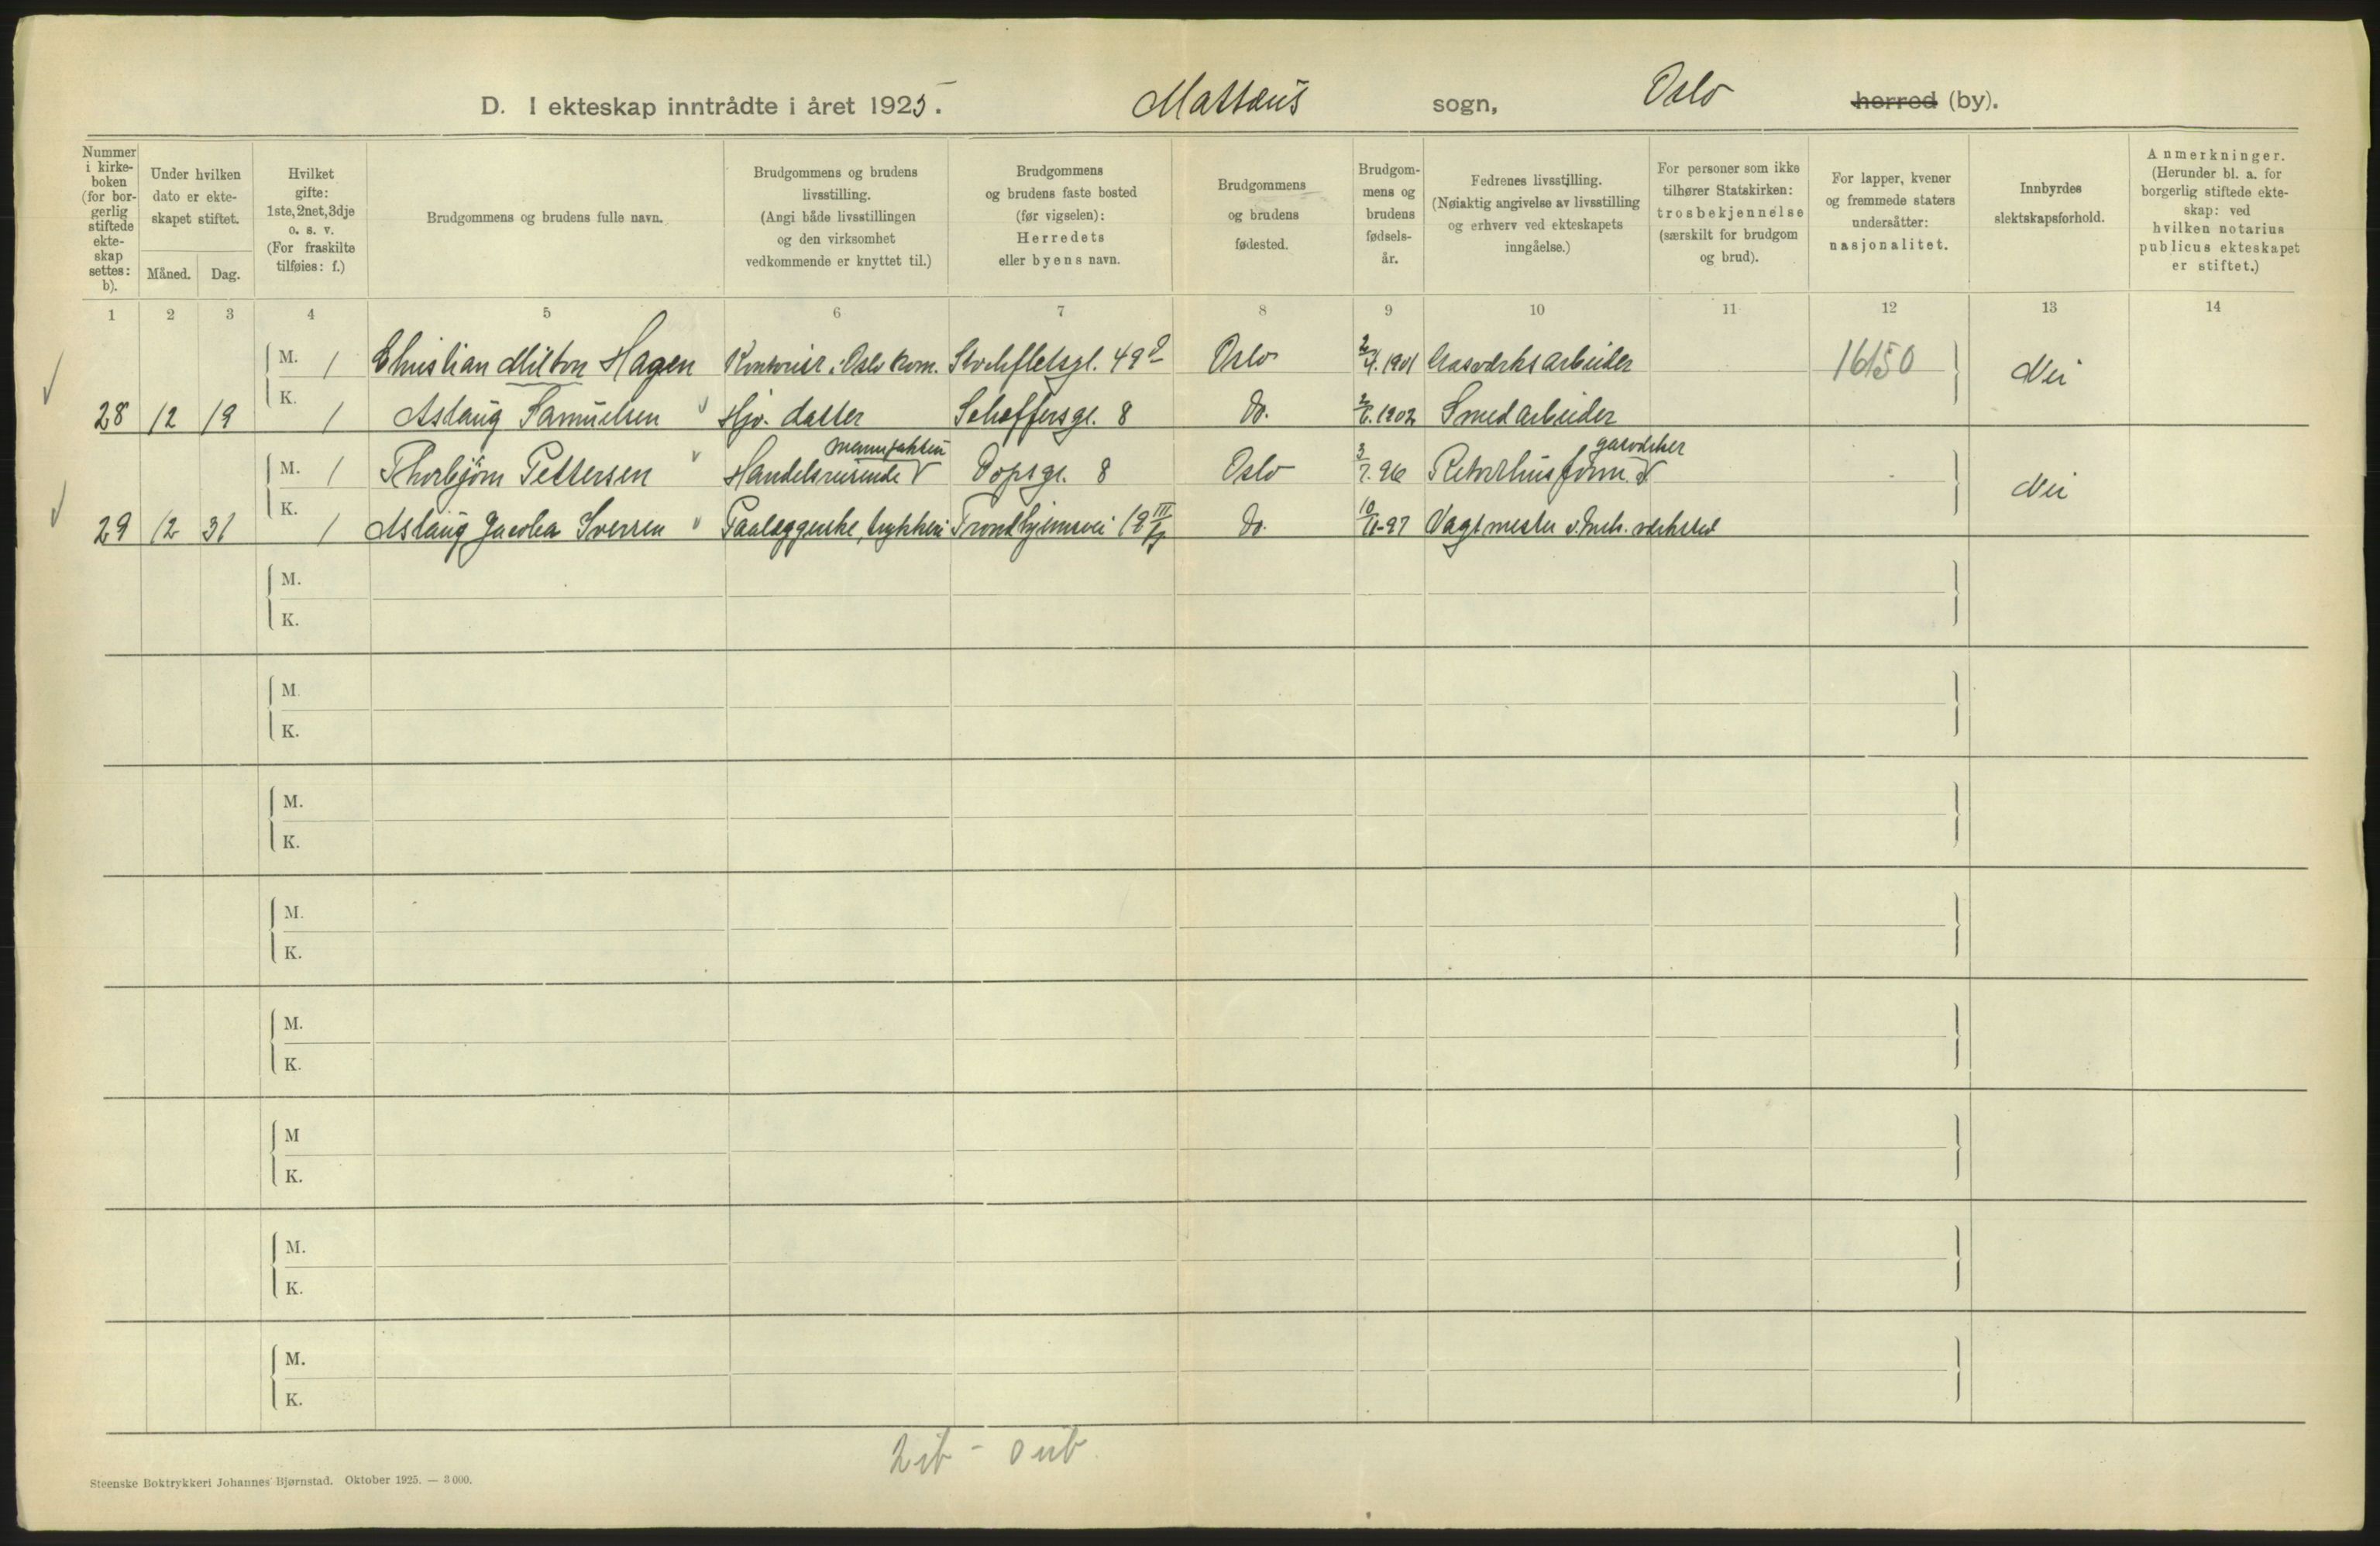 D. I ekteskap inntrådte i året 1925. Mattæus sogn, Oslo herred (by).
Nummer i kirkeboken (for borgerlig stiftede ekteskap settes: b).
Under hvilken dato er ekteskapet stiftet.
Måned. Dag.
Hvilket gifte: 1ste, 2net, 3dje o. s. v. (For fraskilte tilføies: f.)
Brudgommens og brudens fulle navn.
Brudgommens og brudens livsstilling. (Angi både livsstillingen og den virksomhet vedkommende er knyttet til.)
Brudgommens og brudens faste bosted (før vigselen): Herredets eller byens navn.
Brudgommens og brudens fødested.
Brudgommens og brudens fødselsår.
Fedrenes livsstilling. (Nøiaktig angivelse av livsstilling og erhverv ved ekteskapets inngåelse.)
For personer som ikke tilhører Statskirken: trosbekjennelse (særskilt for brudgom og brud).
For lapper, kvener og fremmede staters undersåtter: nasjonalitet.
Innbyrdes slektskapsforhold.
Anmerkninger. (Herunder bl. a. for borgerlig stiftede ekteskap: ved hvilken notarius publicus ekteskapet er stiftet.)
1 2 3 4 5 6 7 8 9 10 11 12 13 14
M. 1 Christian Milton Hagen Kontorist i Oslo kom. Stockfletsgt. 49 Oslo 2/4. 1901 Gasværksarbeider 16150 Nei
28 12 19 K. 1 Aslaug Samuelsen Hjv. datter Scheffersgt. 8 do. 1902 Smedarbeider
manufaktur gasverket
M. 1 Thorbjörn Pettersen Handelsreisende Dopsgt. 8 Oslo 3/7. 96 Retorthusform. Nei
29 12 31 K. 1 Aslaug Jacobea Iversen Paalæggerske, trykkeri Trondhjemsvei 19 do. 10/6-97 Vagtmester v. mek. verksted
M.
K.
M.
K.
M.
K.
M.
K.
M.
K.
M
K.
M.
K.
M.
K.
2 ib - 0 uib
Steenske Boktrykkeri Johannes Bjørnstad. Oktober 1925. — 3 000.